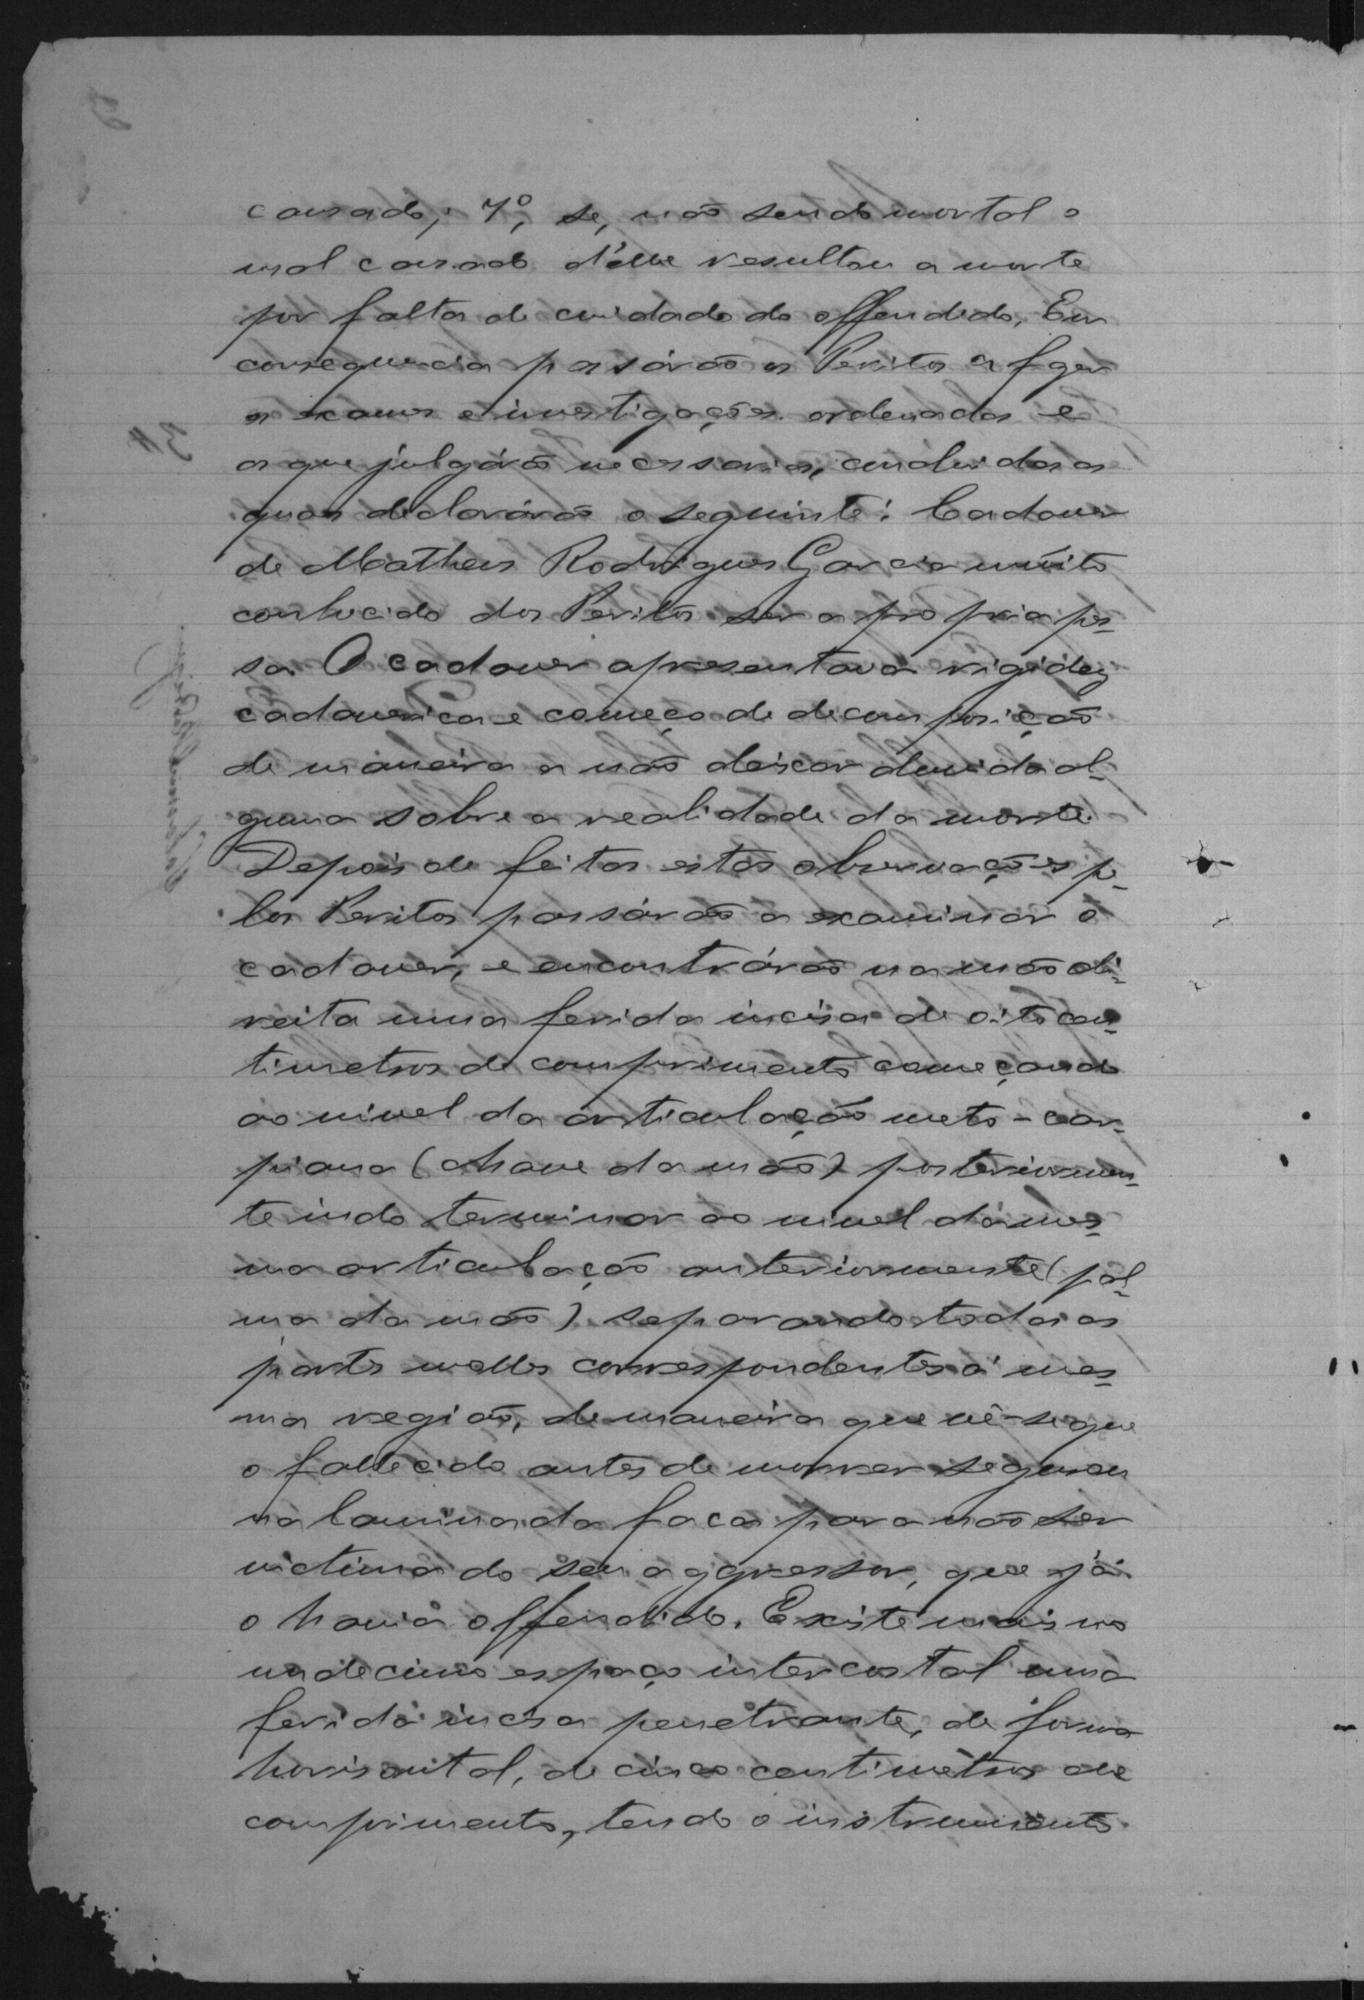 causado; 7º, se, não sendo mortal o
mal causado d'elle resultou a morte
por falta de cuidado do offendido. Em
consequencia passárão os Peritos a fazer
os exames e investigações ordenadas e
as que julgárão necessarias, concluidas as
quaes declarárão o seguinte: Cadaver
de Matheus Rodrigues Garcia muito
conhecido dos Peritos ser a propria pes-
soa. O cadaver apresentava rigidez
cadaverica e começo de decomposição
de maneira a não deixar duvida al-
guma sobre a realidade da morte.
Depois de feitas estas observações pe-
los Peritos passárão a examinar o
cadaver, e encontrárão na mão di-
reita uma ferida incisa de oito cen-
timetros de comprimento começando
ao nivel da articulação meta-car-
piana (chave da mão) posteriormen-
te indo terminar ao nivel da mes-
ma articulação anteriormente (pal-
ma da mão) separando todas as
partes molles correspondentes á mes-
ma região, de maneira que vê-se que
o fallecido antes de morrer segurou
na lamina da faca para não ser
victima do seu aggressor, que já
o havia offendido. Existe mais no
undecimo espaço intercostal uma
ferida incisa penetrante, de forma
horisontal, de cinco centimetros de
comprimento, tendo o instrumento